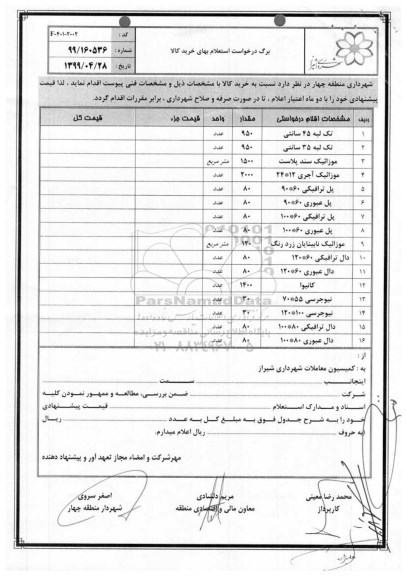 برگ درخواست استعلام بهای خرید کالا
کد : F-۴۰۱-۲۰۰۲
شماره : ۹۹/۱۶۰۵۳۶
تاریخ : ۱۳۹۹/۰۴/۲۸
شهرداری منطقه چهار در نظر دارد نسبت به خرید کالا با مشخصات ذیل و مشخصات فنی پیوست اقدام نماید ، لذا قیمت
پیشنهادی خود را با دو ماه اعتبار اعلام ، تا در صورت صرفه و صلاح شهرداری ، برابر مقررات اقدام گردد.
ردیف مشخصات اقلام درخواستی مقدار واحد قیمت جزء قیمت کل
۱ تک لبه ۴۵ سانتی ۹۵۰ عدد
۲ تک لبه ۳۵ سانتی ۹۵۰ عدد
۳ موزائیک سند پلاست ۱۵۰۰ متر مربع
۴ موزائیک آجری ۱۲*۲۴ ۲۰۰۰ عدد
۵ پل ترافیکی ۶۰*۹۰ ۸۰ عدد
۶ پل عبوری ۶۰*۹۰ ۸۰ عدد
۷ پل ترافیکی ۶۰*۱۰۰ ۸۰ عدد
۸ پل عبوری ۶۰*۱۰۰ ۸۰ عدد
۹ موزائیک نابینایان زرد رنگ ۱۲۰ متر مربع
۱۰ دال ترافیکی ۶۰*۱۲۰ ۸۰ عدد
۱۱ دال عبوری ۶۰*۱۲۰ ۸۰ عدد
۱۲ کانیوا ۱۴۰۰ عدد
۱۳ نیوجرسی ۵۵*۷۰ ۳۰ عدد
۱۴ نیوجرسی ۱۰۰*۱۲۰ ۳۰ عدد
۱۵ دال ترافیکی ۸۰*۱۰۰ ۸۰ عدد
۱۶ دال عبوری ۸۰*۱۰۰ ۸۰ عدد
ParsNamadData
از :
به : کمیسیون معاملات شهرداری شیراز
اینجانب سمت
شرکت ضمن بررسی، مطالعه و ممهور نمودن کلیه
اسناد و مدارک استعلام قیمت پیشنهادی
خود را به شرح جدول فوق به مبلغ کل به عدد ریال
به حروف ریال اعلام میدارم.
مهرشرکت و امضاء مجاز تعهد آور و پیشنهاد دهنده
محمد رضا معینی مریم دلشادی اصغر سروی
کارپرداز معاون مالی و اقتصادی منطقه شهردار منطقه چهار